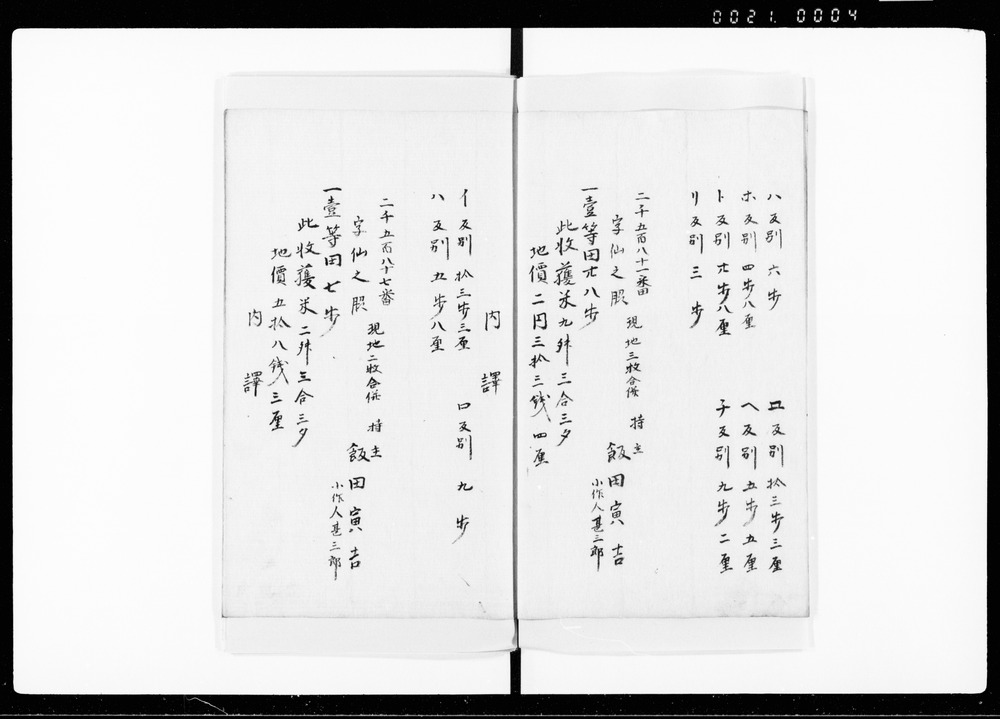 0021.0004
ハ反別 六歩 ニ反別 拾三歩三厘
ホ反別 四歩八厘 ヘ反別 五歩五厘
ト反別 廿歩八厘 チ反別 九歩二厘
リ反別 三歩
二千五百八十一番
字仙之脵 現地三枚合併 持主 飯田寅吉
小作人甚三郎
一壹等田廿八歩
此收獲米九舛三合三夕
地價二円三拾三銭四厘
内譯
イ反別 拾三歩三厘 ロ反別 九歩
ハ反別 五歩八厘
二千五百八十七番
字仙之脵 現地二枚合併 持主 飯田寅吉
小作人甚三郎
一壹等田七歩
此收獲米二舛三合三夕
地價五拾八銭三厘
内譯